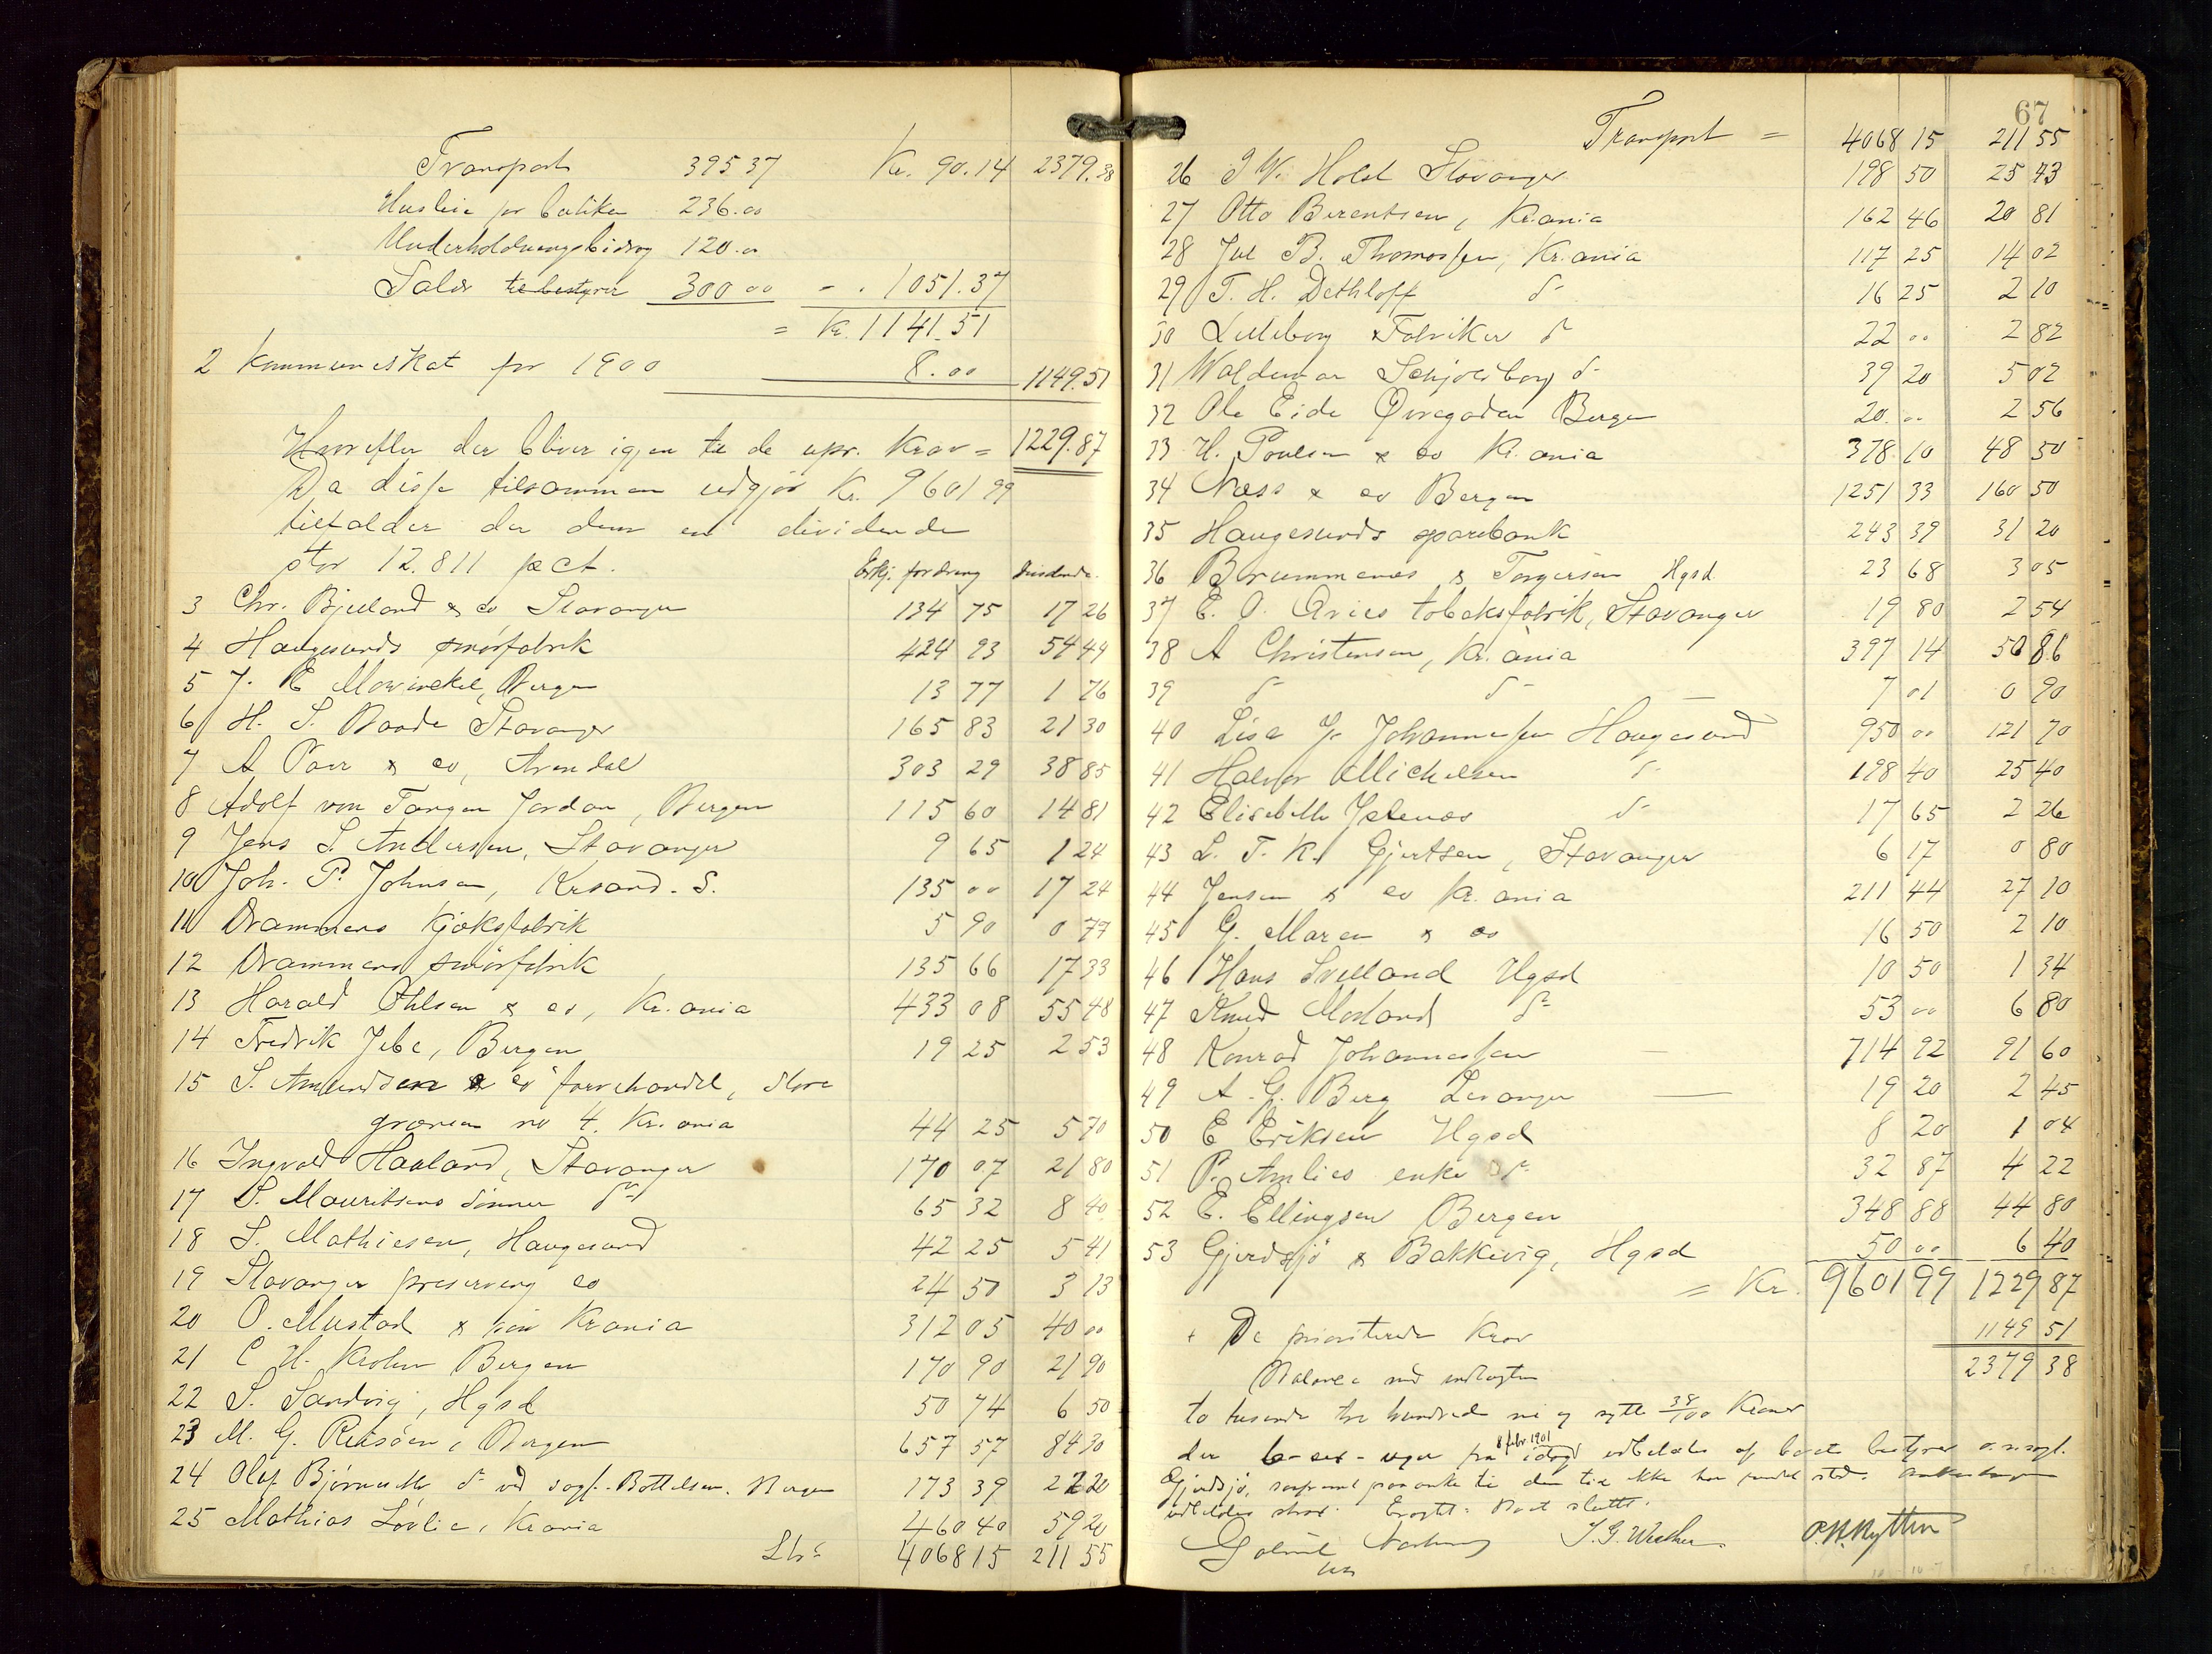 Transport 395 37 Kr. 90.14 2379.38
Husleie for butiken 236.00
Underholdningsbidrag 120.00
Salær til bestyrer 300 00 - . 1051.37
= Kr. 1141.51
2 Kommuneskat for 1900 8.00 1149.51
Hvorefter der bliver igjen til de upr. Krav = 1229.87
Da disse tilsammen udgjør Kr. 9601 99
tilfalder der dem en dividende
stor 12.811 pct. Erkj. fordring dividende.
3 Chr. Bjelland & co Stavanger 134 75 17 26
4 Haugesunds smørfabrik 424 93 54 49
5 J. E Mowinckel, Bergen 13 77 1 76
6 H. S. Baade Stavanger 165 83 21 30
7 A Oaer & co, Arendal 303 29 38 85
8 Adolf von Tangen Jordan, Bergen 115 60 14 81
9 Jens S. Andersen, Stavanger 9 65 1 24
10 Joh. P. Johnsen, Krsand. S. 135 00 17 24
11 Drammens Kjæksfabrik 5 90 0 77
12 Drammens smørfabrik 135 66 17 33
13 Harald Øhlsen & co, Kr.ania 433 08 55 48
14 Fredrik Jebe, Bergen 19 25 2 53
15 S. Amundsen & co farvehandel, Store
grænsen no 4. Kr.ania 44 25 5 70
16 Ingvald Haaland, Stavanger 170 07 21 80
17 S. Mauritsens sønner do 65 32 8 40
18 S. Mathiesen, Haugesund 42 25 5 41
19 Stavanger preserving co 24 50 3 13
20 O. Mustad & søn Krania 312 05 40 00
21 C H. Krohn Bergen 170 90 21 90
22 S. Sandvig, Hgsd 50 74 6 50
23 M. G. Bergen 657 57 84 30
24 Olaf do ved sagf. Bottelsen. Bergen 173 39 22 20
25 Mathias Løvlie, Krania 460 40 59 20
4068 15 211 55
67
Transport = 4068 15 211 55
26 I W. Holst Stavanger 198 50 25 43
27 Otto Berentsen, Kr.ania 162 46 20 81
28 Jul B. Thomassen, Kr.ania 117 25 14 02
29 T. H. Dethloff do 16 25 2 10
30 Lilleborg Fabriker do 22 00 2 82
31 Waldemar Schjolborg do 39 20 5 02
32 Ole Eide Øvregaden Bergen 20 .. 2 56
33 H. Poulsen & co Kr.ania 378 10 48 50
34 Næss & co Bergen 1251 33 160 50
35 Haugesunds sparebank 243 39 31 20
36 Brummenæs & Torgersen Hgsd 23 68 3 05
37 C. O. Aries tobaksfabrik, Stavanger 19 80 2 54
38 A Christensen, Kr.ania 397 14 50 86
39 do do 7 01 0 90
40 Lise G. Johannessen Haugesund 950 00 121 70
41 Halvor Michelsen do 198 40 25 40
42 Elisabeth do 17 65 2 26
43 L. T. K. Gjertsen, Stavanger 6 17 0 80
44 Jensen & co Kr.ania 211 44 27 10
45 G. Maren & co 16 50 2 10
46 Hans Svelland Hgsd 10 50 1 34
47 Knud Mosland do 53 00 6 80
48 Konrad Johannessen — 714 92 91 60
49 A. G. Berg Levanger — 19 20 2 45
50 E Eriksen Hgsd 8 20 1 04
51 P. Amlies enke do 32 87 4 22
52 E. Ellingsen Bergen 348 88 44 80
53 Gjerdsjø & Bakkevig, Hgsd 50 00 6 40
= Kr. 9601 99 1229 87
+ De prioriterede Krav 1149 51
Balance med indtægten 2379 38
to tusende tre hundrede ni og sytti 38/100 Kroner
8 febr. 1901
der fra idag udbetales af boets bestyrer o.r.sagf.
Gjerdsjø, saafremt paaanke til den tid ikke har fundet sted.
udbetales strax. Boet sluttet.